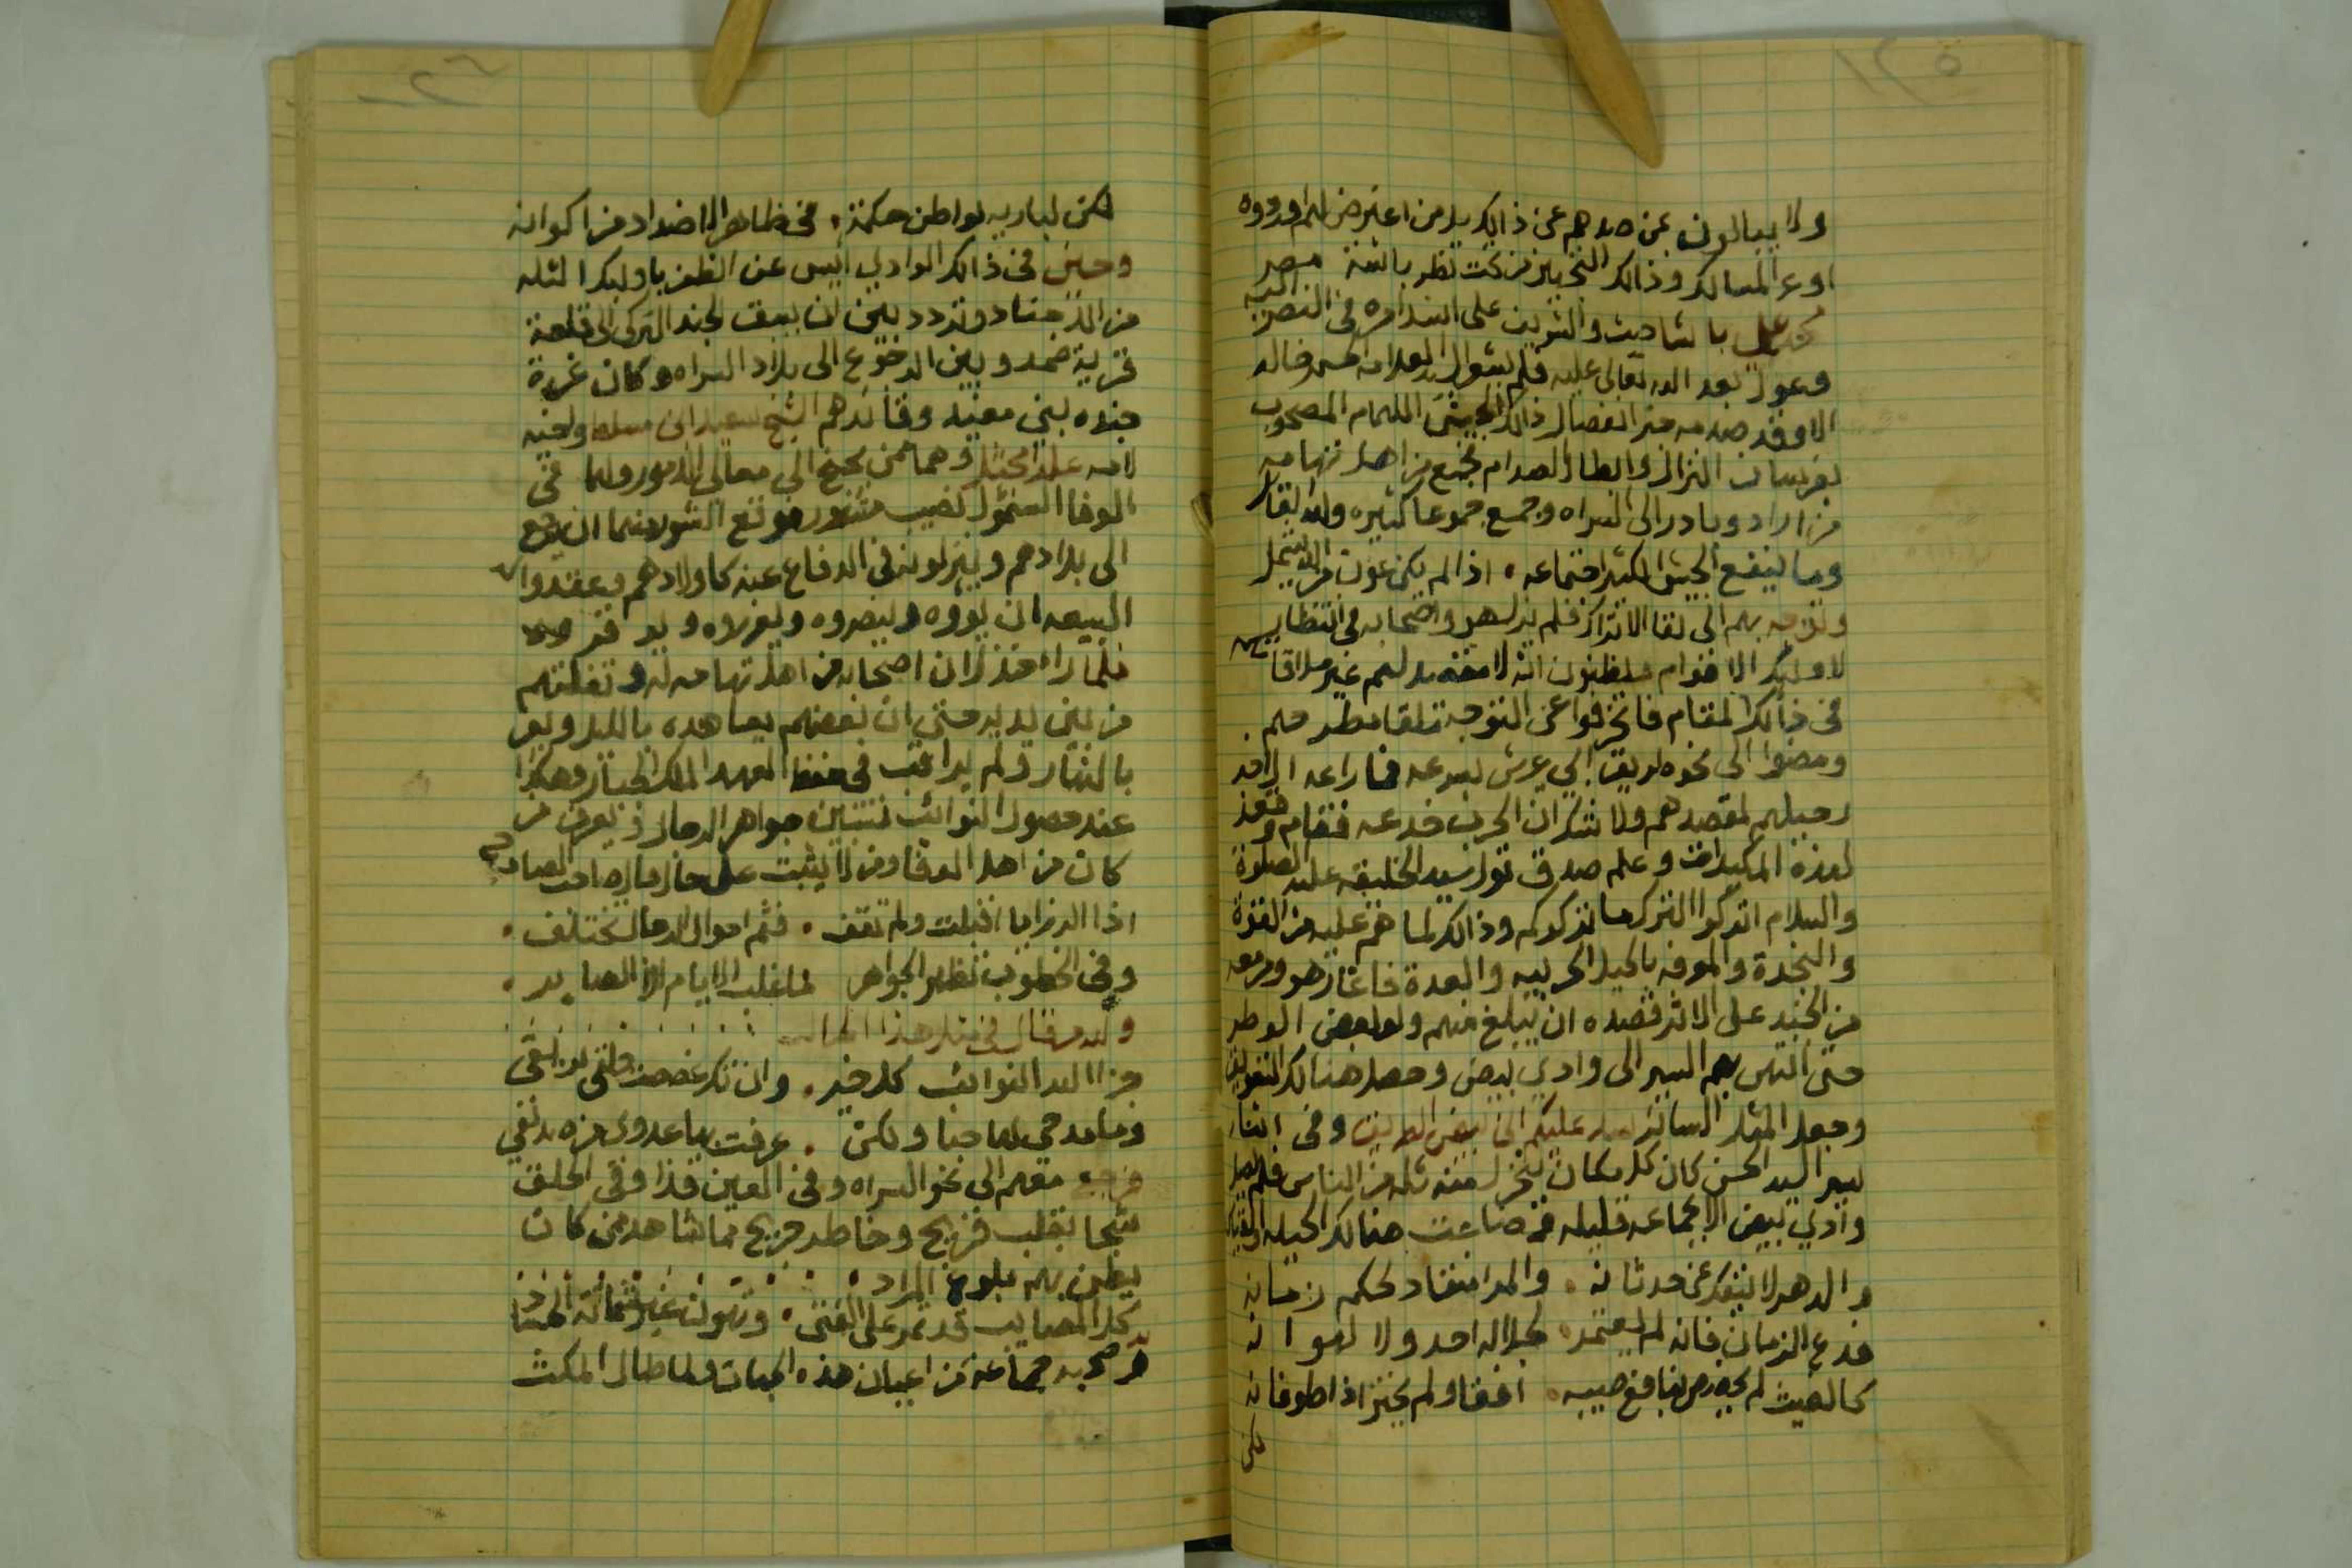 ولا يبالون عن صدهم عن ذالك بل من اعترض لهم اوردوه
اوعر المسالك وذالك التجهيز من تحت نظر باشة مصر
محمد علي باشا حيث والشريف على
وعول بعد الله تعالى عليه فلم
الا وقد صدمه خبر انفصال ذالك الجيش اللهام المصحوب
بفرسان النزال وابطال الصدام تجمع من اهل تهامه
من اراد وبادر الى السراه وجمع جموعا كثيره ولله القائل
وما ينفع الجيش الكثير اجتماعه ٠ اذا لم يكن عون من الله يشمل
وتوجه بهم الى لقا الاتراك فلم يزل هو واصحابه في انتظار
لاوليك الاقوام يظنون انه لا مقصد لهم غير ملاقاتهم
في ذالك المقام فانحرفوا عن التوجه تلقا
ومضوا الى نحو طريق الى عرش بسرعه فما راعه الا وقد
رحيلهم لمقصدهم ولا شك ان الحرب خدعه فقام وقعد
لهذه المكيدات وعلم صدق قول سيد الخليقه عليه الصلوة
والسلام اتركوا الترك ما تركوكم وذالك لما هم عليه من القوة
والنجدة والمعرفه بالحيل الحربيه والعدة فاغار هو ومن معه
من الجند على الاثر قصده ان يبلغ منهم ولو بعض الوطر
حتى انتهى بهم السير الى وادي بيض وحصل هنالك التعويق
وجعل المثل الساير عليكم الى بيض الطريق وفي اثنا
سير السيد الحسن كان كل مكان ينخزل منه ثله من الناس فلم يصل
وادي بيض الا بجماعه قليله فضاعت هنالك الحيله
والدهر لا ينفك عن حدثانه ٠ والمرا منقاد لحكم زمانه
فدع الزمان فانه لم يعتمد ٠ لجلاله احد ولا لهوانه
كالغيث لم يخصص بنافع صيبه ٠ افقا ولم يختر اذا طوفانه
لكن
لكن لباريه بواطن حكمة ٠ في ظاهر الاضداد من اكوانه
وحين في ذالك الوادي ايس عن الظفر باوليك الثله
من الاجناد وتردد بين ان يبقى لجند التركي الى قلعة
قرية ضمد وبين الرجوع الى بلاد السراه وكان غرة
جنده بني مغيد وقائدهم الشيخ سعيد ابن مسلط واخيه
لامه علي ابن مجثل وهما ممن يجنح الى معالي الامور ولهما في
الوفا السمؤل نصيب مشهور فوقع الشور منهما ان يرجع
الى بلادهم وينزلونه في الدفاع عنه كاولادهم وعقدوا له
البيعه ان يؤوه وينصروه ويعزروه ويوقروه
فلما راه خذلان اصحابه من اهل تهامه له وتفلتهم
من بين يديه حتى ان بعضهم يعاهده بالليل ويفر
بالنهار ولم يراقب في حفظ العهد الملك الجبار وهكذا
عند حصول النوائب تتبين جواهر الرجال ويعرف من
كان من اهل الوفا ومن لا يثبت على حال
اذا الرزايا اقبلت ولم تقف ٠ فثم احوال الرجال تختلف ٠
وفي الخطوب تظهر الجواهر ما غلب الايام الا الصابر ٠
ولله من قال في مثل هذا الحال
جزا الله النوائب كل خير ٠ وان تكن غصصت حلقي بريقي
وما مدحي لها حبا ولكن ٠ عرفت بها عدوي من صديقي
فرجع معهم الى نحو السراه وفي العين قذا وفي الحلق
شجا بقلب قريح وخاطر جريح مما شاهد من كان
يظن بهم بلوغ المراد ٠
كل المصايب قد تمر على الفتى ٠ وتهون غير شماتة الحساد
فصحبه جماعه من اعيان هذه الجهات ولما طال المكث